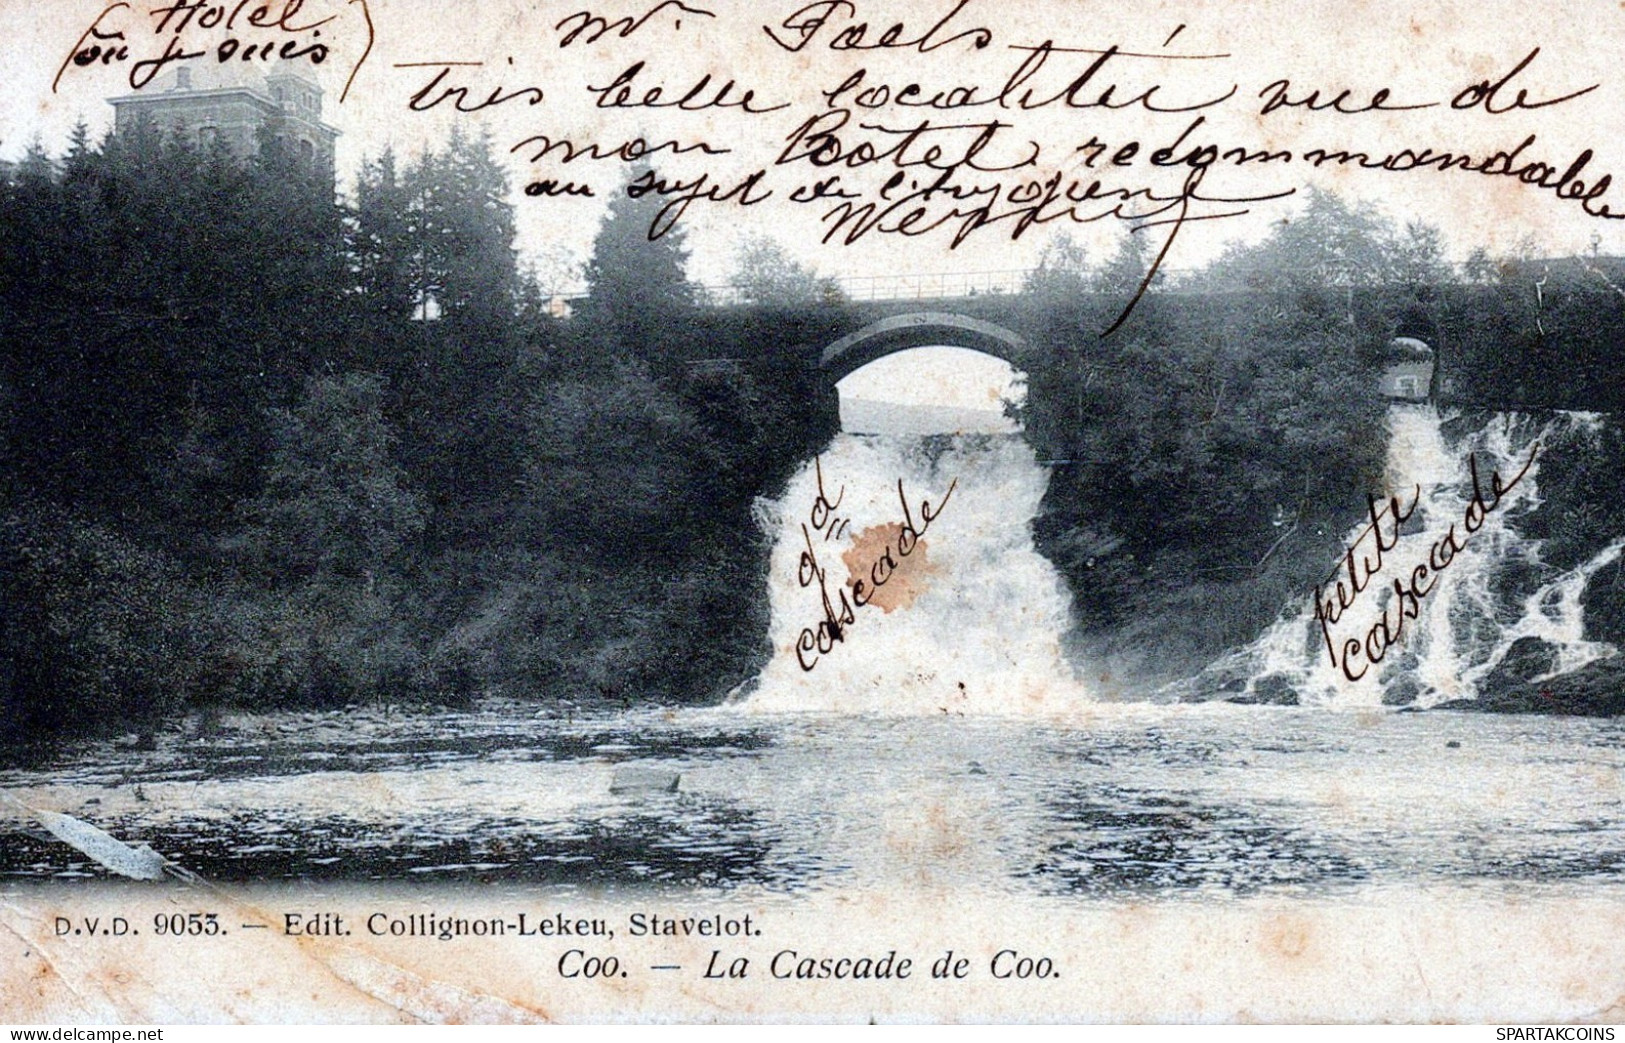 Hotel
(où je suis)
Mr
Très belle localité vue de
mon Hôtel recommandable
au sujet de l'hygiène
gd
cascade
petite
cascade
D.V.D. 9053. — Edit. Collignon-Lekeu, Stavelot.
Coo. — La Cascade de Coo.
delcampe.net
SPARTAKCOINS